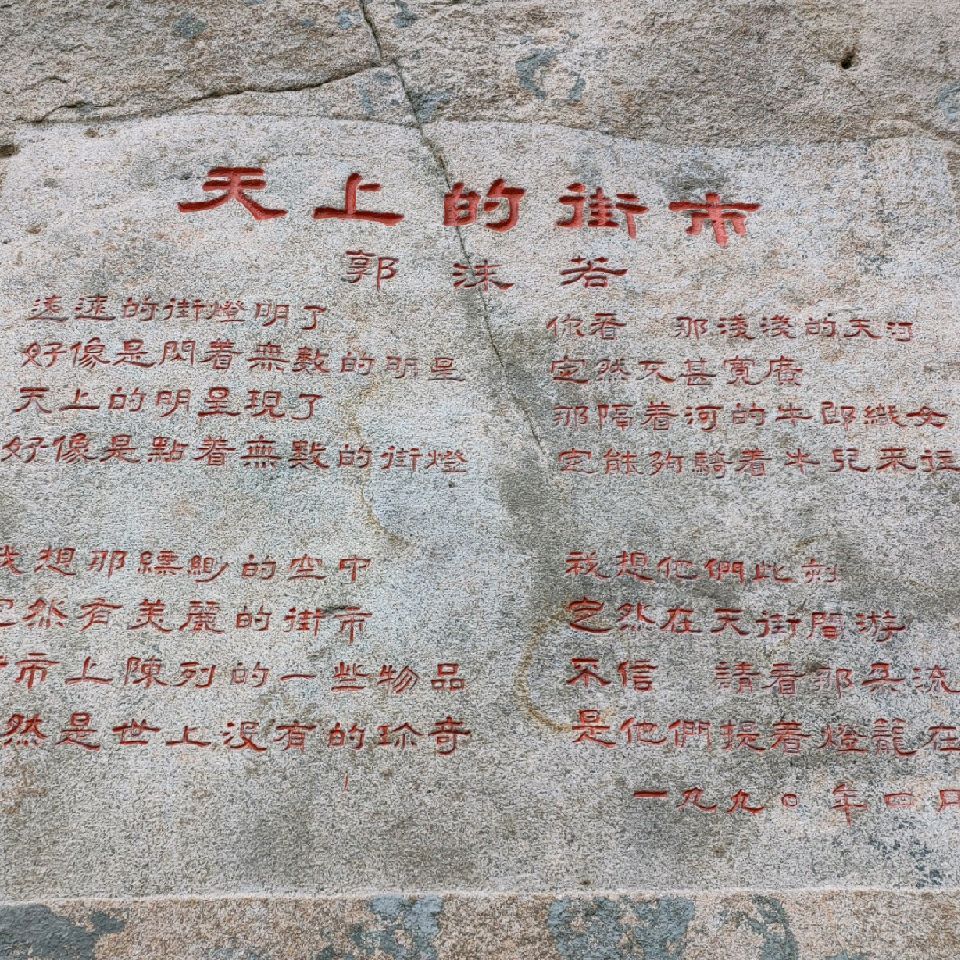 天上的街市
郭沫若
遠遠的街燈明了
好像是閃着無數的明星
天上的明星現了
好像是點着無數的街燈
我想那縹緲的空中
定然有美麗的街市
市上陳列的一些物品
然是世上沒有的珍奇
你看 那淺淺的天河
定然不甚寬廣
那隔着河的牛郎織女
定能夠騎着牛兒來往
我想他們此刻
定然在天街閒游
不信 請看那朵流
是他們提着燈籠在
一九九〇年四月